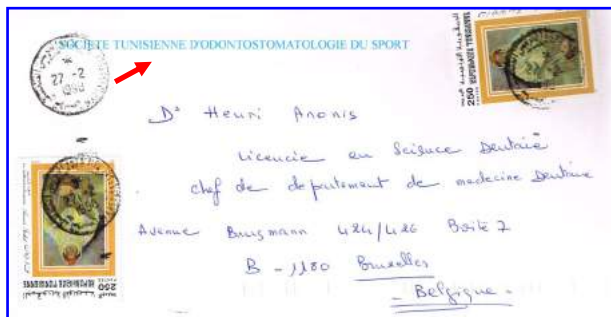 SOCIETE TUNISIENNE D'ODONTOSTOMATOLOGIE DU SPORT
27 -2
250 REPUBLIQUE TUNISIENNE
Dr Henri Anonis
Licencie en Science Dentaire
chef de departement de medecine Dentaire
Avenue Brugmann 424/426 Boite 7
B - 1180 Bruxelles
- Belgique -
250 REPUBLIQUE TUNISIENNE